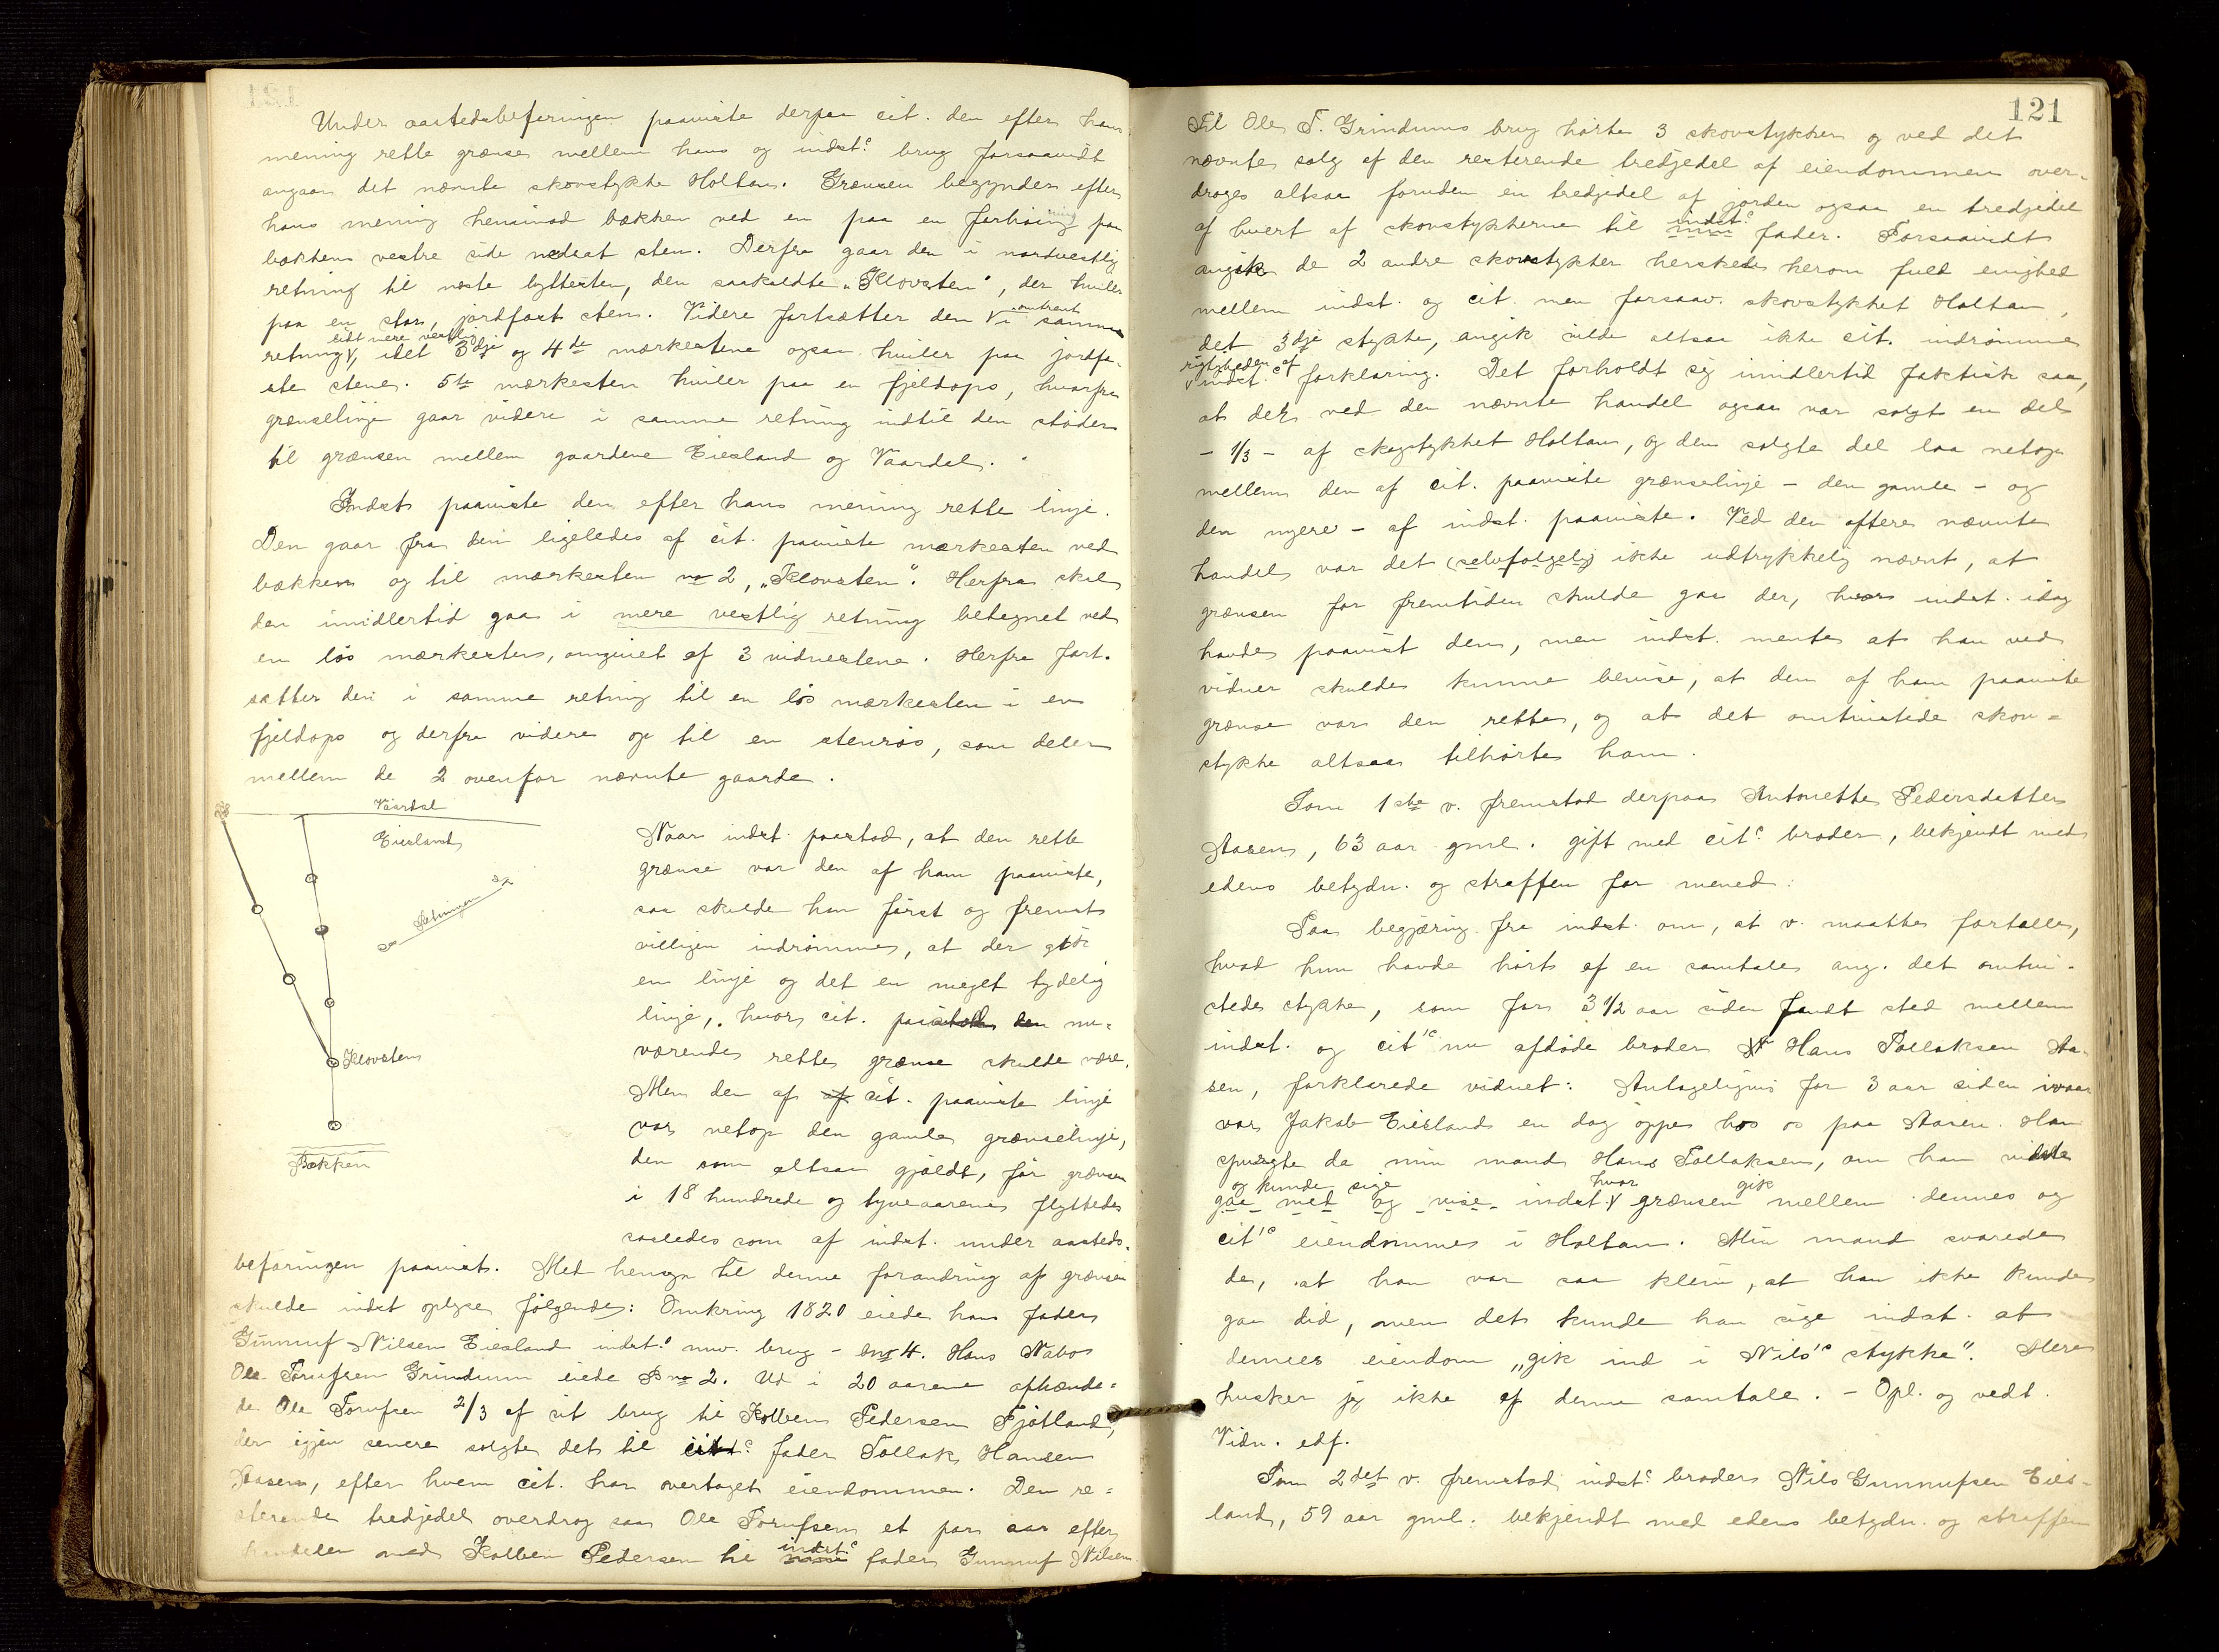 Under aastedsbefaringen paaviste derpaa cit. den efter hans
mening rette grænse mellem hans og indstˢ brug forsaavidt
angaar det nævnte skovstykke Holtan. Grænsen begynder efter
hans mening henimod bækken ved en paa en forhøining paa
bækkens vestre side nedsat sten. Derfra gaar den i nordvestlig
retning til næste byttesten, den saakaldte "Klovsten", der hviler
paa en stor, jordfast sten. Videre fortsætter den omtrent i samme
retning, lidt mere vestlig, idet 3dje og 4de mærkestene ogsaa hviler paa jordfa-
ste stene. 5te mærkesten hviler paa en fjeldops, hvorfra
grænselinje gaar videre i samme retning indtil den støder
til grænsen mellem gaardene Eiesland og Vaardal.
Indst. paaviste den efter hans mening rette linje.
Den gaar fra den ligeledes af cit. paaviste mærkesten ved
bækken og til mærkesten no 2, "Klovsten". Herfra skal
den imidlertid gaa i mere vestlig retning betegnet ved
en løs mærkesten, omgivet af 3 vidnestene. Herfra fort-
sætter den i samme retning til en løs mærkesten i en
fjeldops og derfra videre op til en stenrøs, som deler
mellem de 2 ovenfor nævnte gaarde.
Vaardal
Eiesland
Retningen
Klovsten
Bækken
Naar indst. paastod, at den rette
grænse var den af ham paaviste,
saa skulde han først og fremst
villigen indrømme, at der gik
en linje og det en meget tydelig
linje, hvor cit. paastod den nu-
værende rette grænse skulde være.
Men den af af cit. paaviste linje
var netop den gamle grænselinje,
den som altsaa gjaldt, før grænsen
i 18 hundrede og tyveaarene flyttedes
saaledes som af indst. under aasteds-
befaringen paavist. Med hensyn til denne forandring af grænsen
skulde indst oplyse følgende: Omkring 1820 eiede hans fader
Gunnuf Nilsen Eiesland indst.ˢ nuv. brug - bno 4. Hans Nabo
Ole Torufsen Grindum eiede Bno 2. Ud i 20 aarene afhænde-
de Ole Torufsen 2/3 af sit brug til Kolben Pedersen Fjotland,
der igjen senere solgte det til citˢ fader Tollak Hansen
Aasen, efter hvem cit. har overtaget eiendommen. Den re-
sterende tredjedel overdrog saa Ole Torufsen et par aar efter
handelen med Kolben Pedersen til indstˢ fader Gunnuf Nilsen.
121
Til Ole T. Grindums brug hørte 3 skovstykker og ved det
nævnte salg af den resterende tredjedel af eiendommen over-
droges altsaa foruden en tredjedel af jorden ogsaa en tredjedel
af hvert af skovstykkerne til indst.ˢ fader. Forsaavidt
angik de 2 andre skovstykker herskede herom fuld enighed
mellem indst. og cit. men forsaav. skovstykket Holtan,
det 3dje stykke, angik vilde altsaa ikke cit. indrømme
rigtigheden af indst.ˢ forklaring. Det forholdt sig imidlertid faktisk saa,
at der ved den nævnte handel ogsaa var solgt en del
- 1/3 - af skogstykket Holtan, og den solgte del laa netop
mellem den af cit. paaviste grænselinje - den gamle - og
den nyere - af indst. paaviste. Ved den oftere nævnte
handel var det (selvfølgelig) ikke udtrykkelig nævnt, at
grænsen for fremtiden skulde gaa der, hvor indst. idag
havde paavist den, men indst. mente at han ved
vidner skulde kunne bevise, at den af ham paaviste
grænse var den rette, og at det omtvistede skov-
stykke altsaa tilhørte ham.
Som 1ste v. fremstod derpaa Antonette Pedersdatter
Aasen, 63 aar gml. gift med citˢ broder, bekjendt med
edens betydn. og straffen for mened.
Paa begjæring fra indst. om, at v. maatte fortælle,
hvad hun havde hørt af en samtale ang. det omtvi-
stede stykke, som for 3 1/2 aar siden fandt sted mellem
indst. og cit'ˢ nu afdøde broder Hans Tollaksen Aa-
sen, forklarede vidnet: Antageligvis for 3 aar siden ivaar
var Jakob Eiesland en dag oppe hos os paa Aasen. Han
spurgte da min mand Hans Tollaksen, om han vidste
og kunde sige
gaa med og vise indst. hvor grænsen gik mellem dennes og
cit'ˢ eiendomme i Holtan. Min mand svarede
da, at han var saa klein, at han ikke kunde
gaa did, men det kunde han sige indst. at
dennes eiendom "gik ind i Nils'ˢ stykke". Mere
husker jeg ikke af denne samtale. - Opl. og vedt.
Vidn. edf.
Som 2det v. fremstod indst.ˢ broder Nils Gunnufsen Eies-
land, 59 aar gml. bekjendt med edens betydn. og straffen